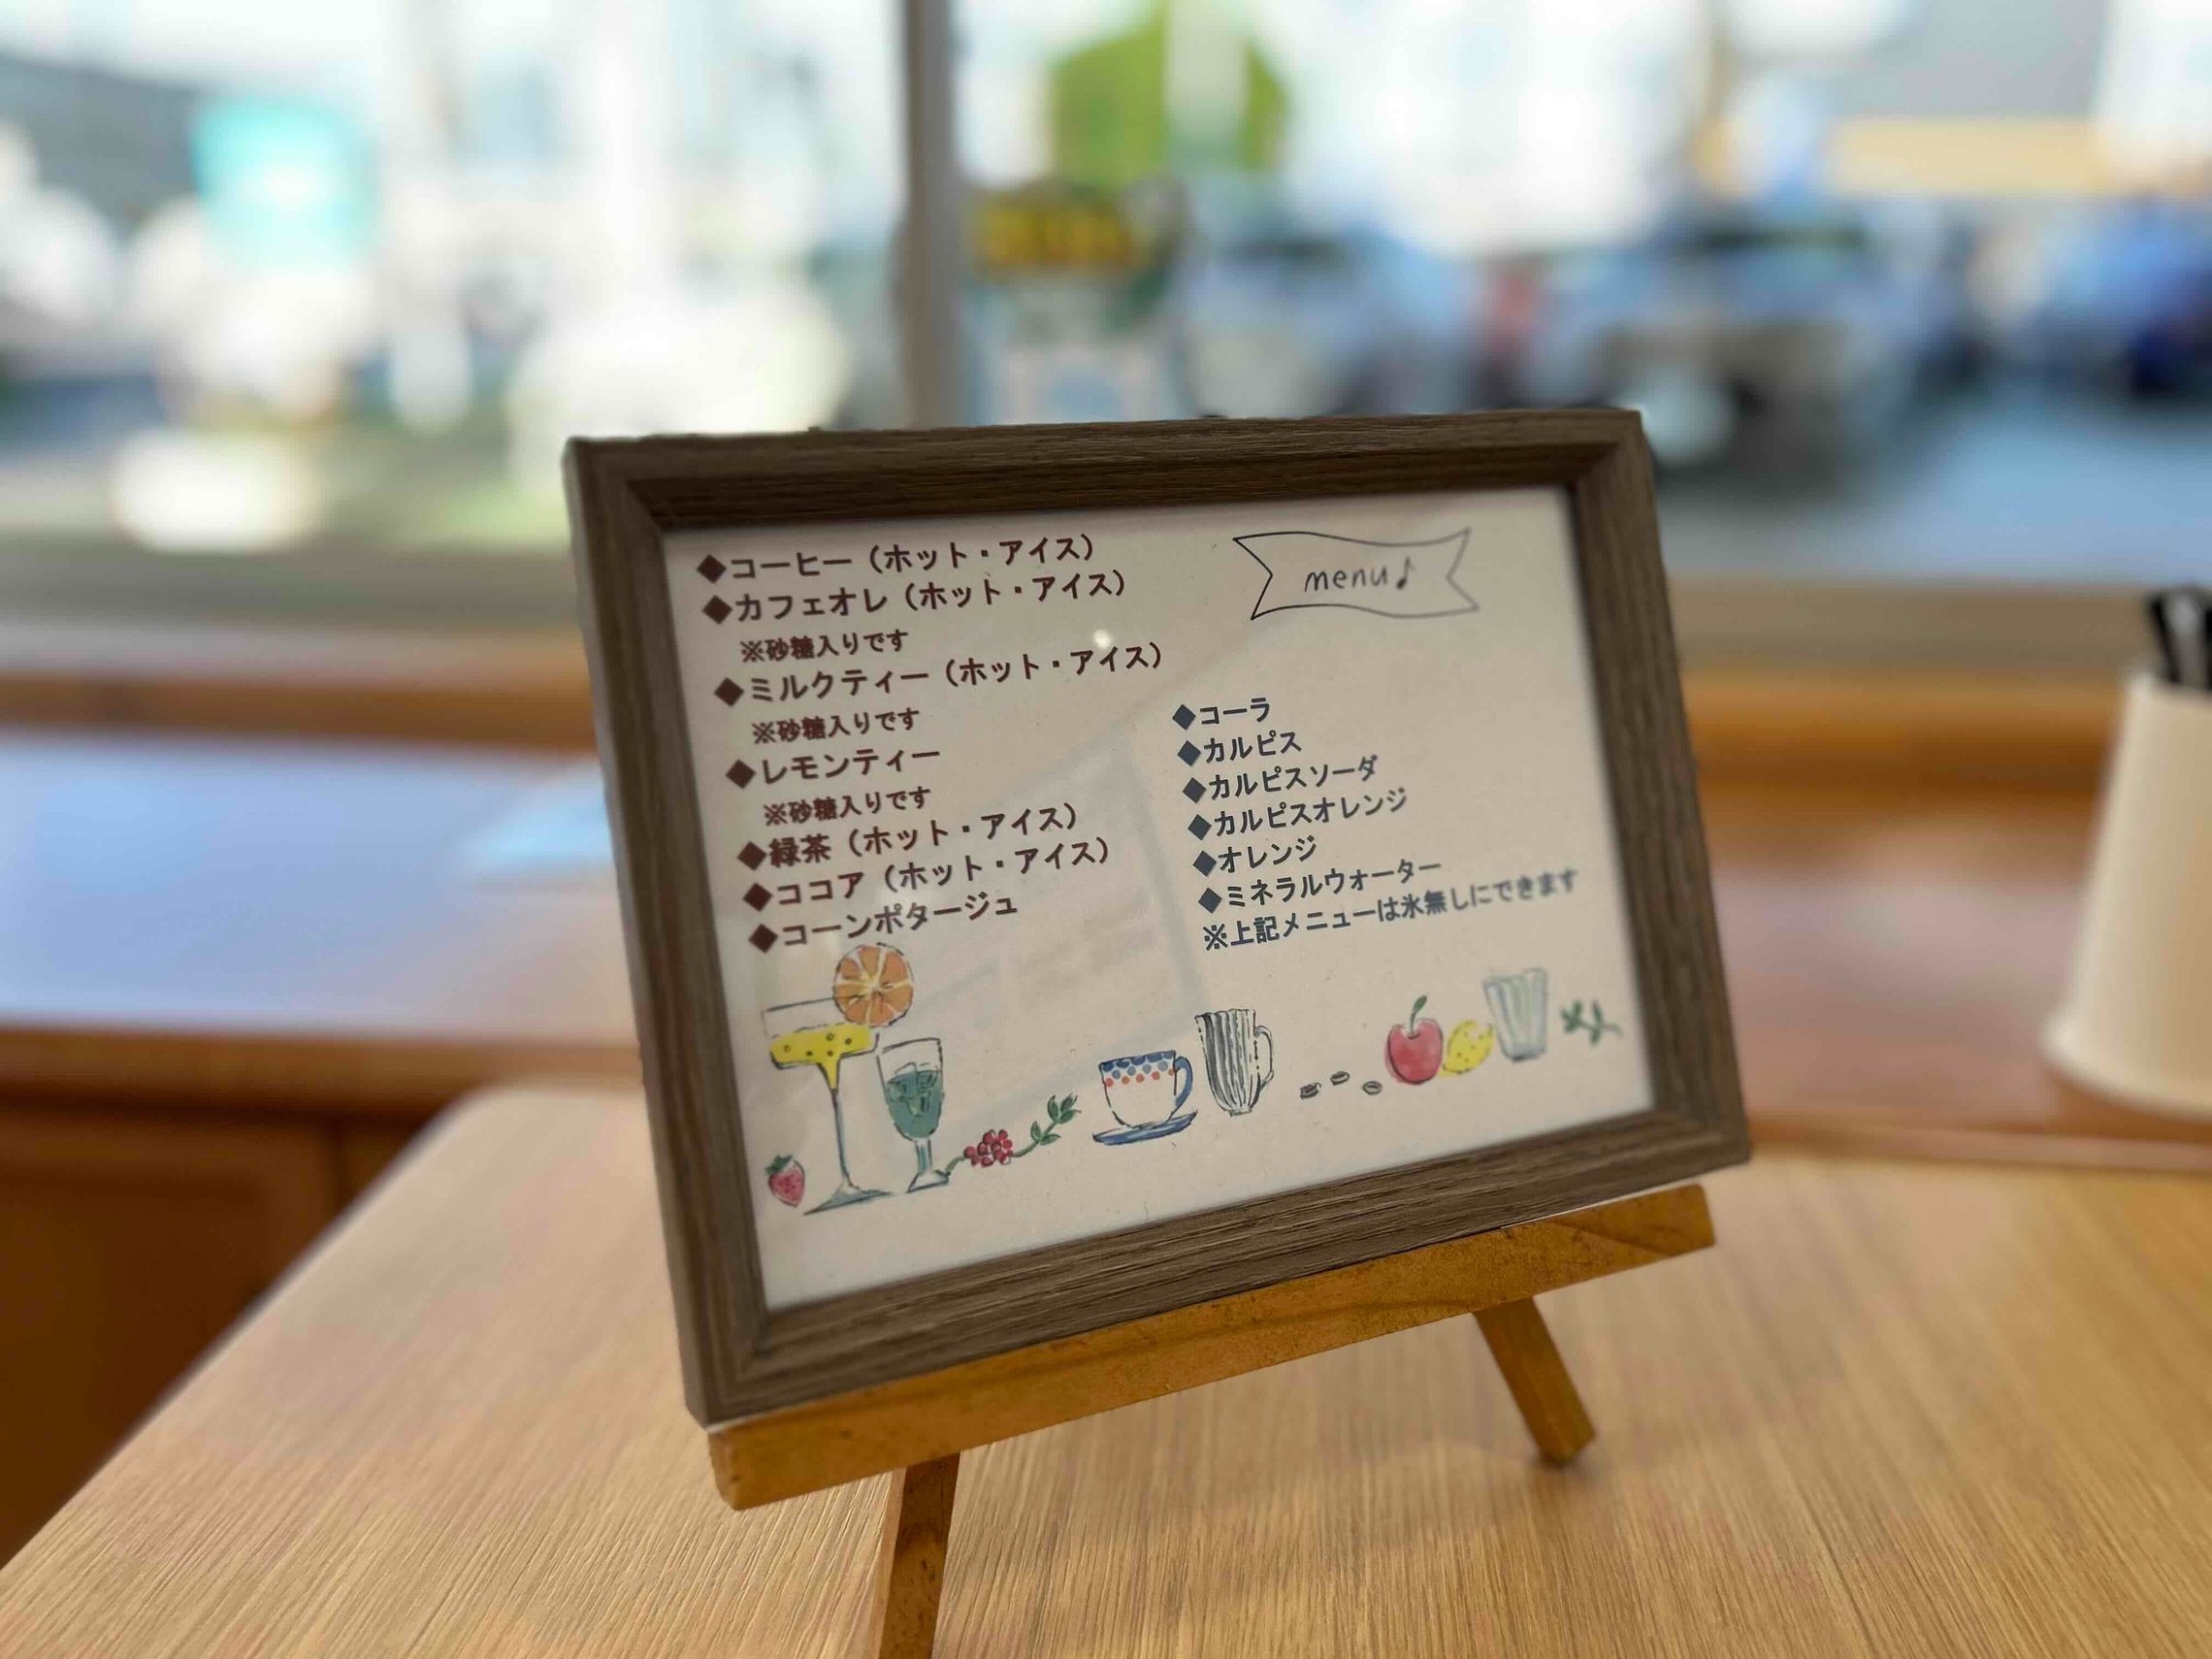 ◆コーヒー（ホット・アイス）
◆カフェオレ（ホット・アイス）
※砂糖入りです
◆ミルクティー（ホット・アイス）
※砂糖入りです
◆レモンティー
※砂糖入りです
◆緑茶（ホット・アイス）
◆ココア（ホット・アイス）
◆コーンポタージュ
menu♪
◆コーラ
◆カルピス
◆カルピスソーダ
◆カルピスオレンジ
◆オレンジ
◆ミネラルウォーター
※上記メニューは氷無しにできます